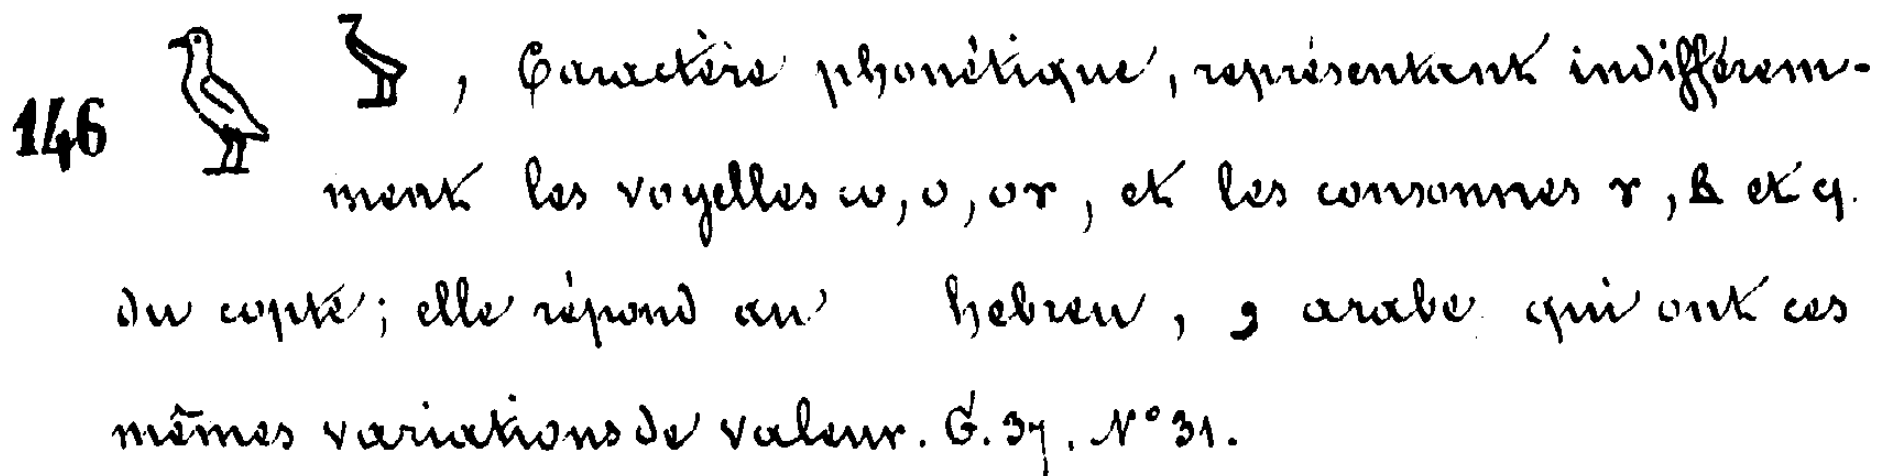 146 𓅱, Caractère phonétique, représentant indifférem-
ment les voyelles ⲱ, ⲟ, ⲟⲩ, et les consonnes ⲩ, ⲃ et ϥ.
du copte; elle répond au hebreu, و arabe qui ont ces
mêmes variations de valeur. G. 37. N° 31.